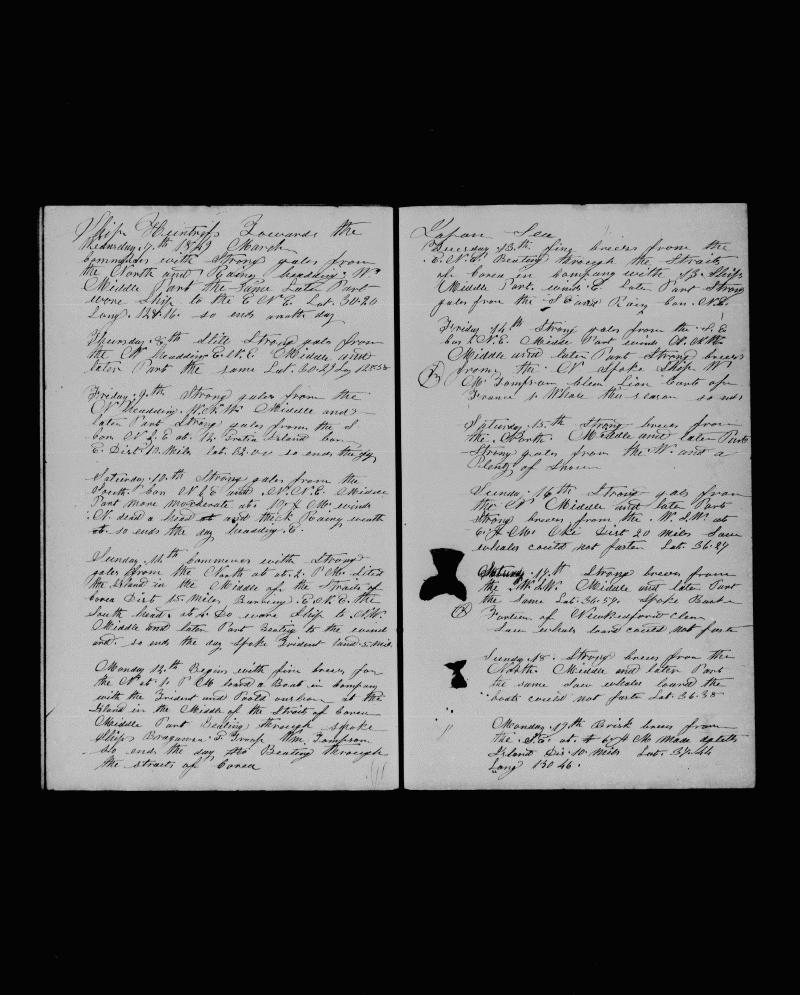 Ship Towards the
Wednsday 7th 1849 March
Commences with Strong gales from
the North and Rainy headding W.
Middle Part the Same Later Part
wore Ship to the E N E Lat. 30.20
Long. 124.16. so ends anoth day
Thursday 8th Still Strong gales from
the headding Middle and
later Part the same Lat. 30.29 Lon
Friday 9th Strong gales from the
headding Middle and
later Part Strong gales from the S
bon N & E at 12 Island bon
E. Dist 10 Miles Lat. 32.00 so ends the day
Saturday 10th Strong gales from the
South bon N & E and N.N.E. Middle
Part more moderate at 10 A M winds
N. dead a head and thick Rainy weath
so ends the day headding E.
Sunday 11th Commences with Strong
gales from the North at at 2 P M. Sited
the Island in the Middle of the Straits of
Corea Dist 15 Miles Bearing E.N.E. the
South head at 4 Do wore Ship to N.W.
Middle and later Part Beating to the wind
ard. so ends the day Spoke Trident land 5 Mils
Monday 12th Begins with fine breses fro
the N at 1 P M lowd a Boat in Company
with the Trident and at the
Island in the Middle of the Strait of Corea
Middle Part Beating through spoke
Ships Braganza & Wm. Tompson
So ends the day Beating through
the straits of Corea
Japan Sea
Thursday 13th fine breses from the
E.N.E. Beating through the Straits
of Corea in Company with 13 Ships
Middle Part winds E Later Part Strong
gales from the S E and Rain bon N.E.
Friday 14th Strong gales from the S. E
bon N.E. Middle Part winds
Middle and later Part Strong breses
from the N Spoke Ship Wm
Tompson Clean Lion Boats of
France 1 Whale this season so ends
Saturday 15th Strong breses from
the North. Middle and later Part
Strong gales from the W and a
Plenty of Snow
Sunday 16th Strong gals from
the N Middle and late Part
Strong breses from the W.S.W. at
6 A M. Oke Dist 20 Miles Saw
whales could not fasten Lat. 36.27
17th Strong breses from
the W.S.W. Middle and later Part
the same Lat. 36.59. Spoke Bark
of Newbedford Clean
Saw whals lowd could not fasten
Sunday 18. Strong breses from the
North Middle and later Part
the same Saw whales lowerd the
boats could not fasten Lat. 36.38
Monday 19th Brisk breses from
the S.E. at 6 A M Made
Island Dis. 10 Miles Lat. 37.44
Long 130 46.